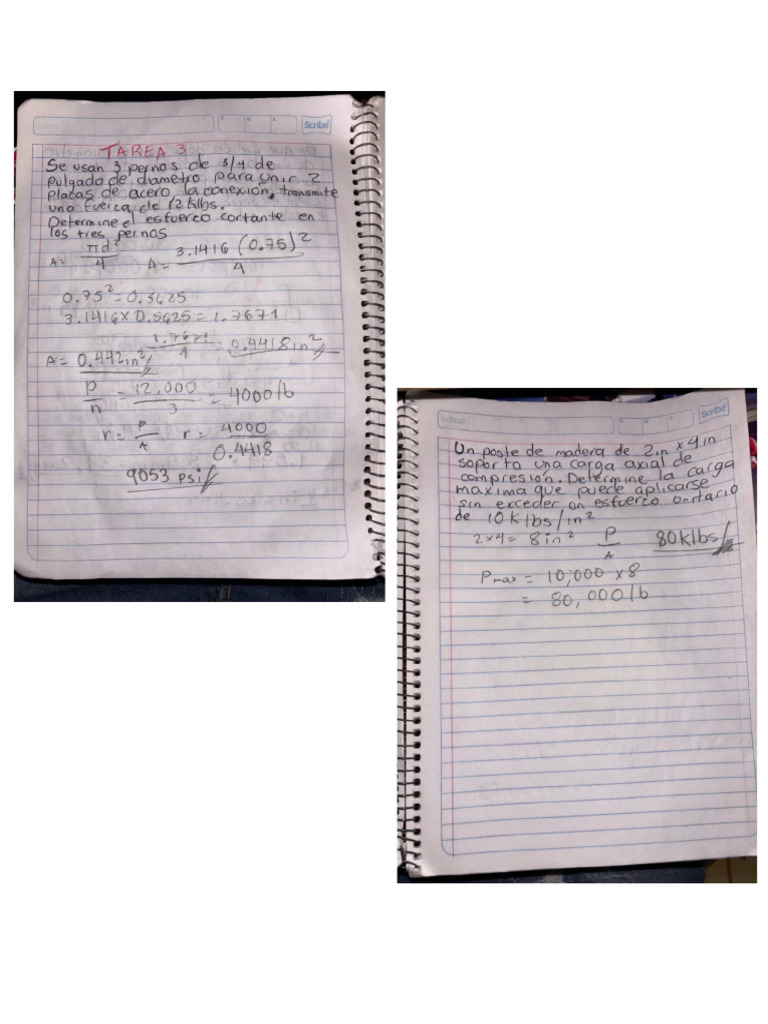 Scribe
TAREA 3
Se usan 3 pernos de 3/4 de
pulgada de diametro para unir 2
placas de acero la conexión, transmite
una fuerza de 12 klbs.
Determine el esfuerzo cortante en
los tres pernos
A= πd²/4 A= 3.1416 (0.75)²/4
0.75² = 0.5625
3.1416 x 0.5625 = 1.7671
A= 0.442in² 1.7671/4 = 0.4418in²
P/n = 12,000/3 = 4000lb
r= P/A r= 4000/0.4418
9053 psi
Scribe
Un poste de madera de 2in x 4in
soporta una carga axial de
compresión. Determine la carga
maxima que puede aplicarse
sin exceder un esfuerzo unitario
de 10klbs/in²
2x4= 8in² P/A 80klbs/
Pmax = 10,000 x 8
= 80,000lb